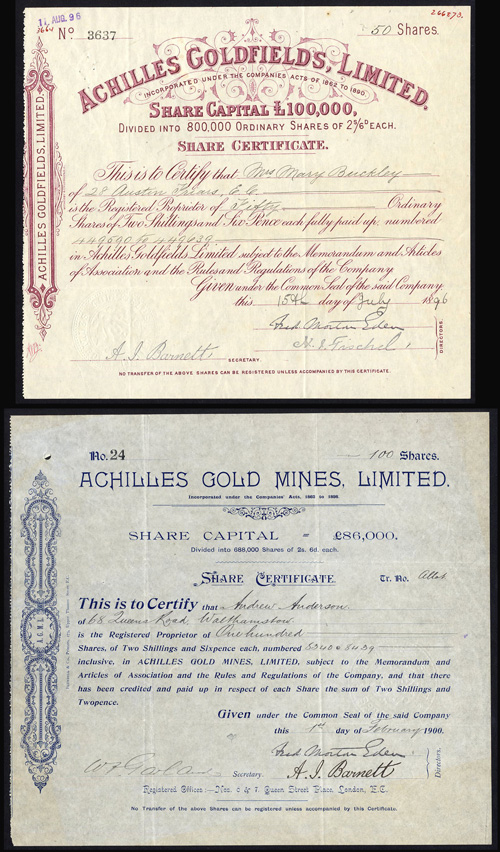 11 AUG. 96
266273.
No 3637
50 Shares.
ACHILLES GOLDFIELDS, LIMITED.
INCORPORATED UNDER THE COMPANIES ACTS OF 1862 TO 1890.
SHARE CAPITAL £100,000,
DIVIDED INTO 800,000 ORDINARY SHARES OF 2s/6D EACH.
SHARE CERTIFICATE.
This is to Certify that Mrs Mary Buckley
of 28 Austin Friars, E.C.
is the Registered Proprietor of Fifty Ordinary
Shares of Two Shillings and Six Pence each fully paid up, numbered
449590 to 449639
in Achilles Goldfields Limited subject to the Memorandum and Articles
of Association and the Rules and Regulations of the Company
Given under the Common Seal of the said Company
this 15th day of July 1896
Fred Morton Eden
A. J. Barnett,
SECRETARY.
DIRECTORS.
NO TRANSFER OF THE ABOVE SHARES CAN BE REGISTERED UNLESS ACCOMPANIED BY THIS CERTIFICATE.
ACHILLES GOLDFIELDS, LIMITED.
No. 24
100 Shares.
ACHILLES GOLD MINES, LIMITED.
Incorporated under the Companies' Acts, 1862 to 1898.
SHARE CAPITAL = £86,000.
Divided into 688,000 Shares of 2s. 6d. each.
SHARE CERTIFICATE.
Tr. No. Allot
This is to Certify that Andrew Anderson
of 68 Queens Road Walthamstow
is the Registered Proprietor of One hundred
Shares, of Two Shillings and Sixpence each, numbered 5340 @ 5439
inclusive, in ACHILLES GOLD MINES, LIMITED, subject to the Memorandum and
Articles of Association and the Rules and Regulations of the Company, and that there
has been credited and paid up in respect of each Share the sum of Two Shillings and
Twopence.
Given under the Common Seal of the said Company
this 1st day of February 1900.
Fred Morton Eden
A. J. Barnett
Directors.
Secretary.
Registered Offices:—Nos. 6 & 7, Queen Street Place, London, E.C.
No Transfer of the above Shares can be registered unless accompanied by this Certificate.
A.G.M.L.